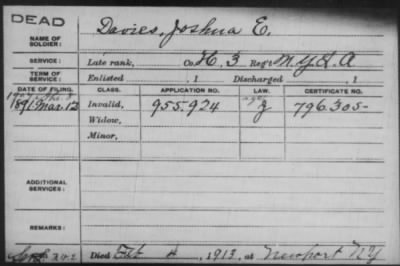 DEAD
NAME OF SOLDIER: Davies, Joshua E.
SERVICE: Late rank, Co. H, 3 Reg't N.Y.L.A
TERM OF SERVICE: Enlisted , 1 Discharged , 1
DATE OF FILING. CLASS. APPLICATION NO. LAW. CERTIFICATE NO.
1891 Mar. 12 Invalid, 955.924 J 796.305
Widow,
Minor,
ADDITIONAL SERVICES:
REMARKS:
Died Feb 4, 1913, at Newport NY